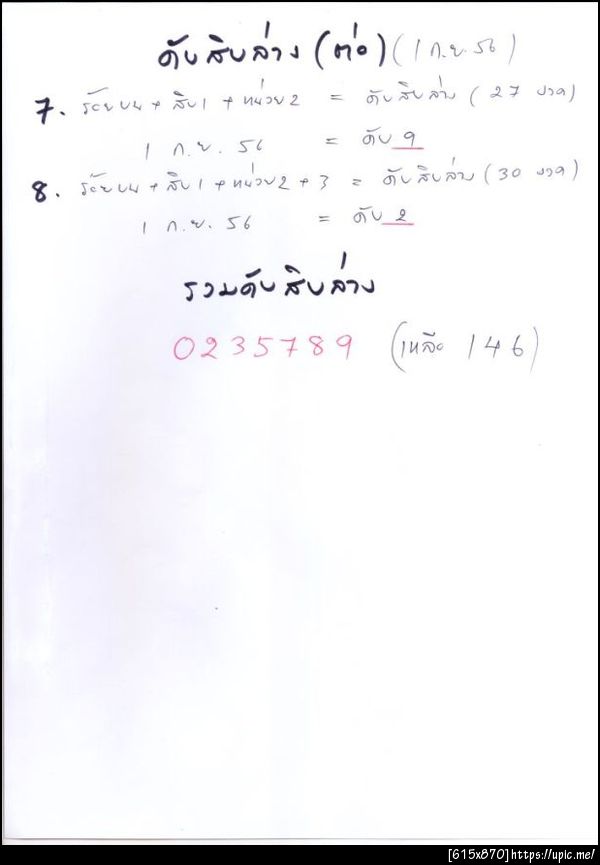 ดับสิบล่าง (ต่อ) (1 ก.ย. 56)
7. ร้อยบน + สิบ1 + หน่วย2 = ดับสิบล่าง (27 งวด)
1 ก.ย. 56 = ดับ 9
8. ร้อยบน + สิบ1 + หน่วย2 + 3 = ดับสิบล่าง (30 งวด)
1 ก.ย. 56 = ดับ 2
รวมดับสิบล่าง
0235789 (เหลือ 146)
[615x870]https://upic.me/